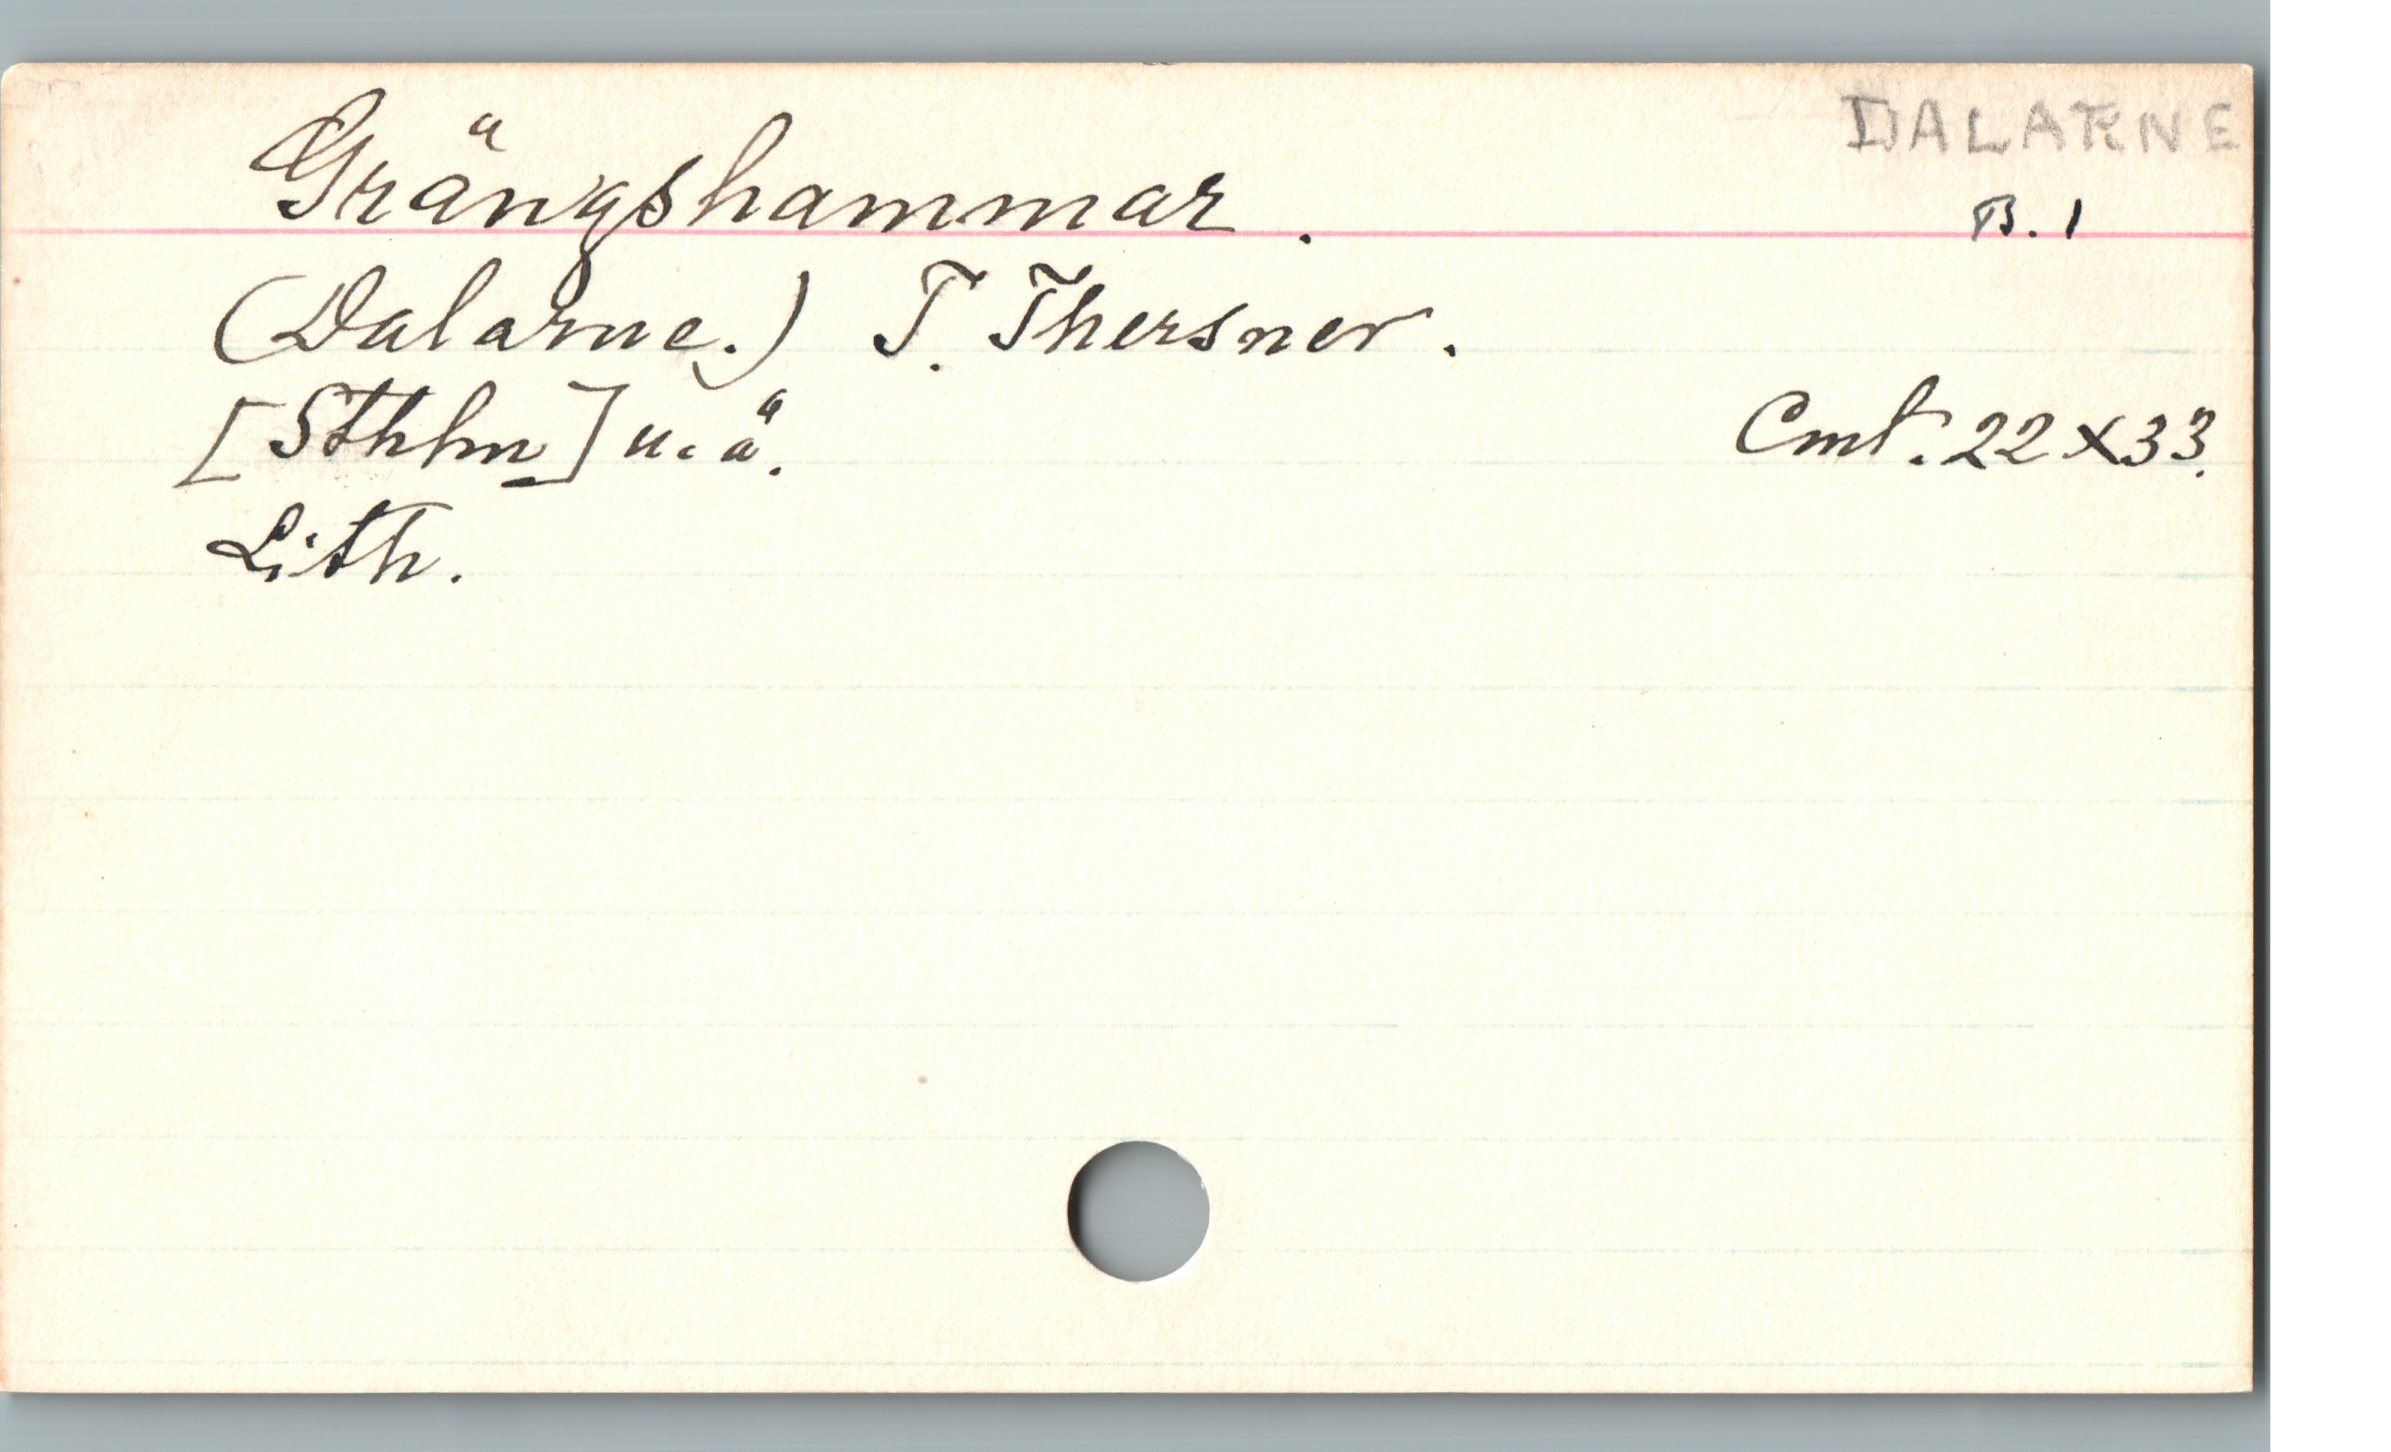 DALARNE
Grängshammar. B. 1
(Dalarne.) T. Thersner.
[Sthlm] u. ä. Cmt. 22 x 33.
Lith.